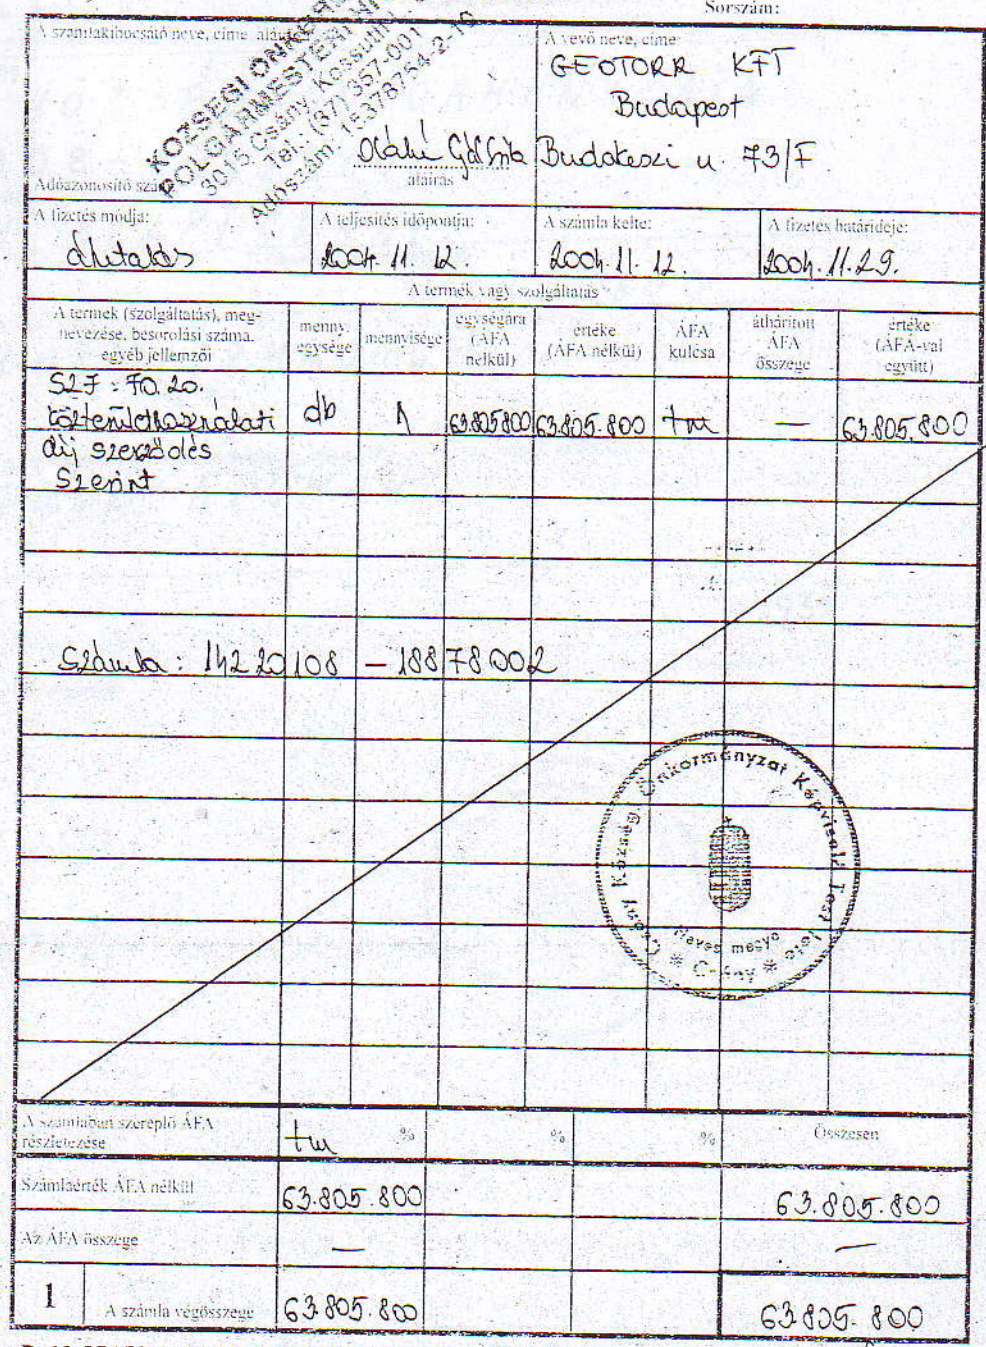 Sorszám:
A számlakibocsátó neve, címe aláírása
KÖZSÉGI ÖNKOR
POLGÁRMESTERI HI
3015 Csány, Kossuth
Tel.: (37) 357-001
Adószám: 15378754-2-10
Adóazonosító szám
aláírás
A vevő neve, címe:
GEOTORR KFT
Budapest
Budakeszi u. 73/F
A fizetés módja:
átutalás
A teljesítés időpontja:
2004. 11. 12.
A számla kelte:
2004. 11. 12.
A fizetés határideje:
2004. 11. 29.
A termék vagy szolgáltatás
A termék (szolgáltatás), meg-
nevezése, besorolási száma,
egyéb jellemzői
menny.
egysége
mennyisége
egységára
(ÁFA
nélkül)
értéke
(ÁFA nélkül)
ÁFA
kulcsa
áthárított
ÁFA
összege
értéke
(ÁFA-val
együtt)
SZJ: 70.20.
közterülethasználati db 1 63.805.800 63.805.800 tm — 63.805.800
díj szerződés
szerint
Számla: 14220108 - 18878002
Csány Község Önkormányzat Képviselő Testülete
Heves megye
* Csány *
A számlában szereplő ÁFA
részletezése
tm % % % Összesen
Számlaérték ÁFA nélkül 63.805.800 63.805.800
Az ÁFA összege — —
1 A számla végösszege 63.805.800 63.805.800